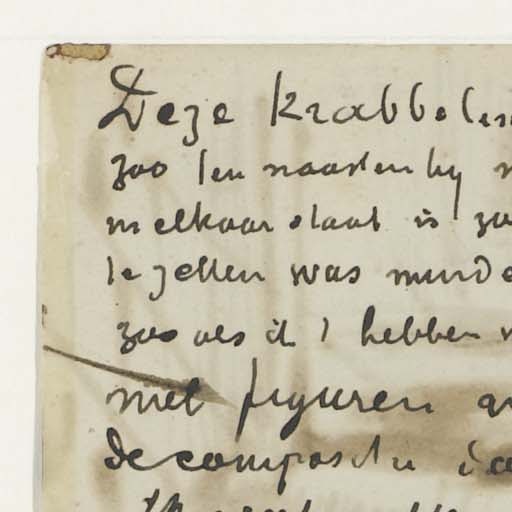 Deze krabbelin
zoo ten naastenby
melkaar staat is zo
te zetten was minde
zoo als ik 't hebben
met figuren
decompositie